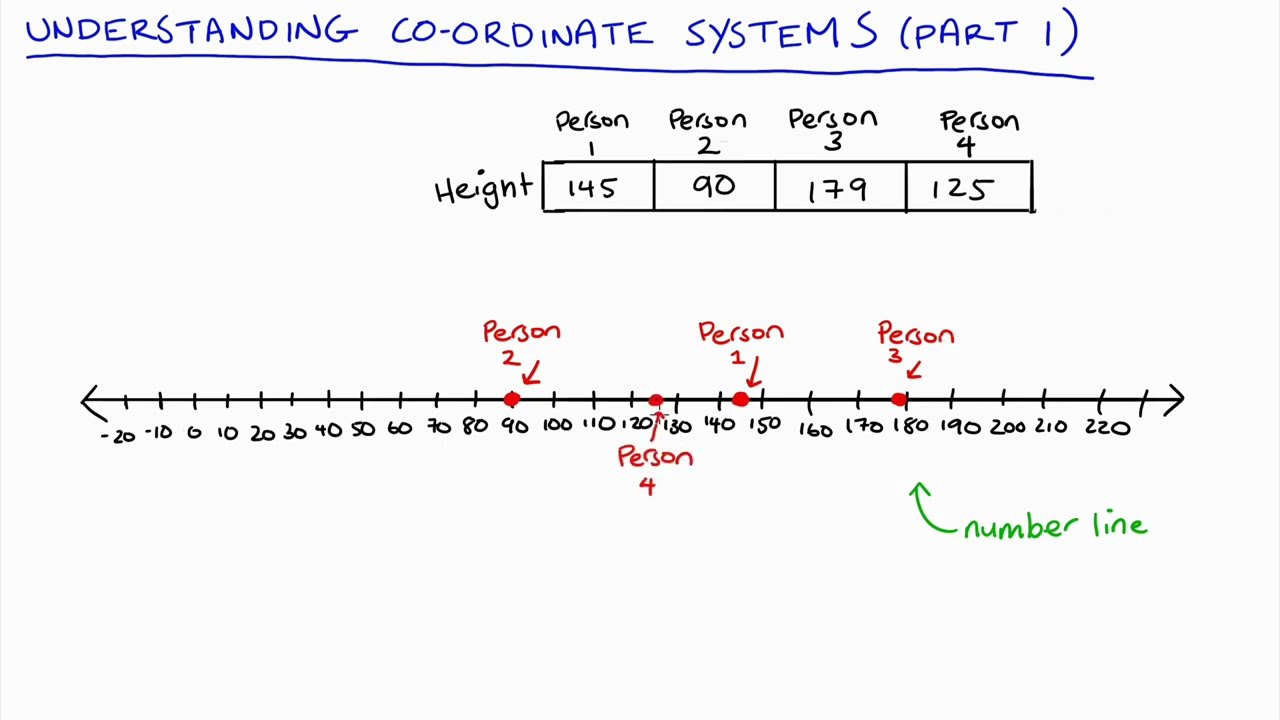 UNDERSTANDING CO-ORDINATE SYSTEMS (PART 1)
Person Person Person Person
1 2 3 4
Height 145 90 179 125
Person Person Person
2 1 3
-20 -10 0 10 20 30 40 50 60 70 80 90 100 110 120 130 140 150 160 170 180 190 200 210 220
Person
4
number line